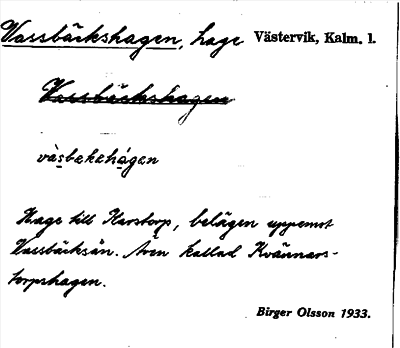 Vassbäckshagen, hage Västervik, Kalm. l.
Vassbäckshagen
vàsbekehágen
Hage till Karstorp, belägen uppemot
Vassbäcksån. Även kallad Kvännars-
torpshagen.
Birger Olsson 1933.